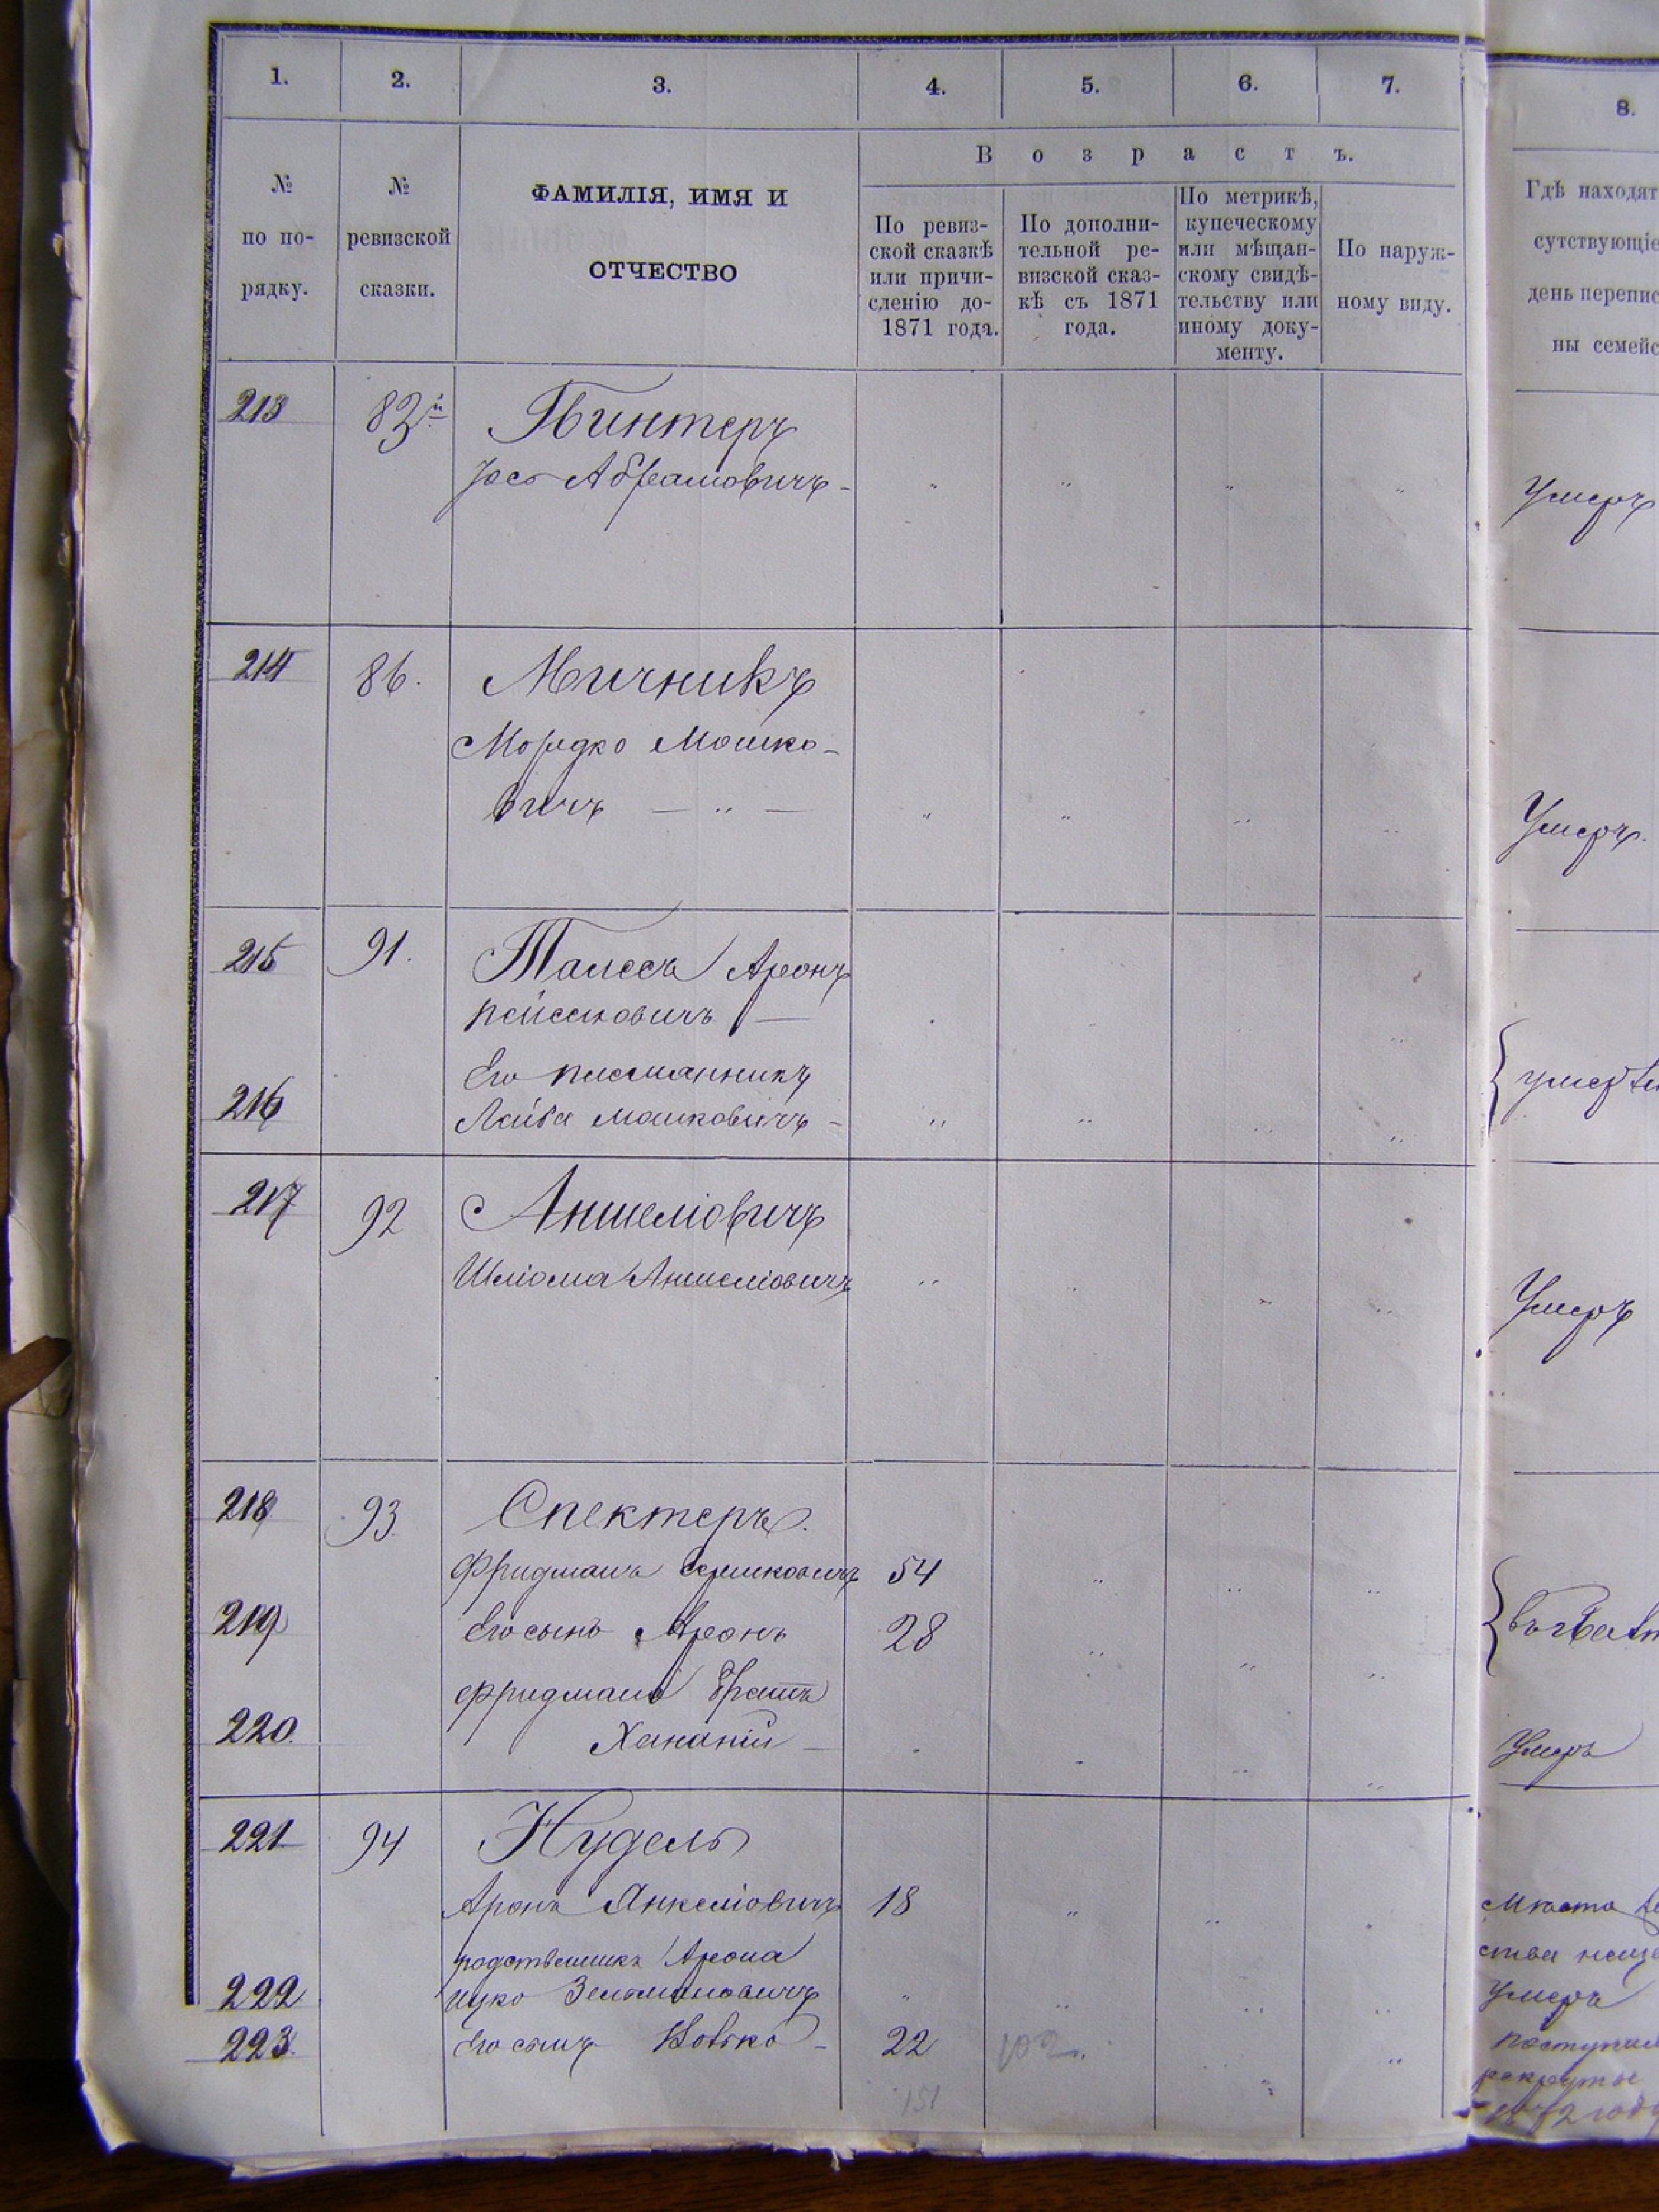 1. 2. 3. 4. 5. 6. 7. 8.
№ по по-рядку.
№ ревизской сказки.
ФАМИЛІЯ, ИМЯ И ОТЧЕСТВО
Возрастъ.
По ревиз-
ской сказкѣ
или причи-
сленію до-
1871 года.
По дополни-
тельной ре-
визской сказ-
кѣ съ 1871
года.
По метрикѣ,
купеческому
или мѣщан-
скому свидѣ-
тельству или
иному доку-
менту.
По наруж-
ному виду.
Гдѣ находят
сутствующіе
день перепис
ны семейс
213 83й
Абрамовичъ - " " " " Умеръ
214 86. Мичникъ
Мордко Мошко-
вичъ — " — " " " " Умеръ.
215 91. Аронъ
Пейсековичъ —
Его племянникъ
216 Лейба Мошковичъ - " " " "
217 92 Аншеліовичъ
Шліома Аншеліовичъ " " " Умеръ
218 93 Спекторъ.
Фридманъ 54 " " "
219 Его сынъ Аронъ 28 " " "
Фридмана братъ
220. Хананій — " " Умеръ
221 94 Нудель
Аронъ Янкеліовичъ 18 " " Мѣсто
родственникъ Арона
222 Ицко Зельмановичъ " " " " Умеръ
223. Его сынъ - 22 "
рекруты
1872 году
151